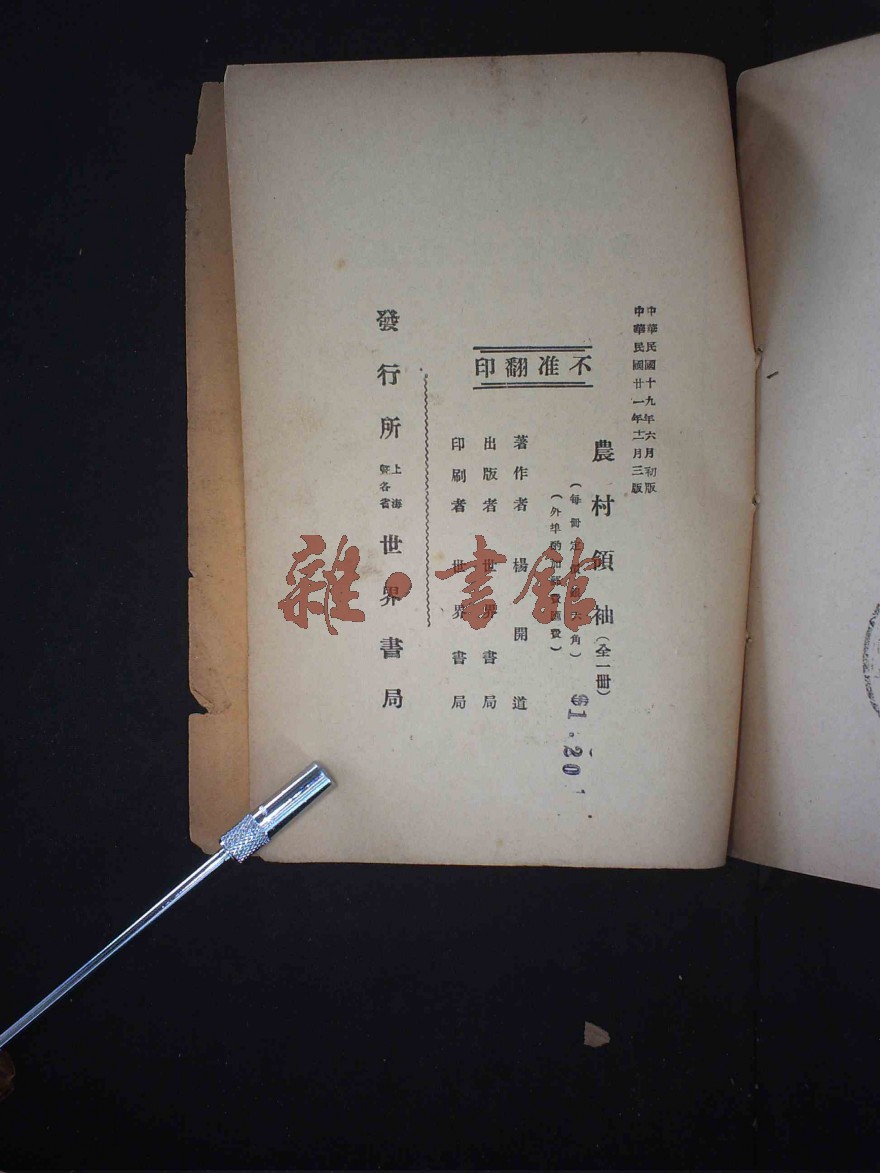 中華民國十九年六月初版
中華民國廿一年十二月三版
不准翻印
農村領袖（全一冊）
（每冊定
六角）
$1.20
（外埠酌加郵費匯費）
著作者 楊開道
出版者 世界書局
印刷者 世界書局
發行所 上海暨各省 世界書局
雜·書館